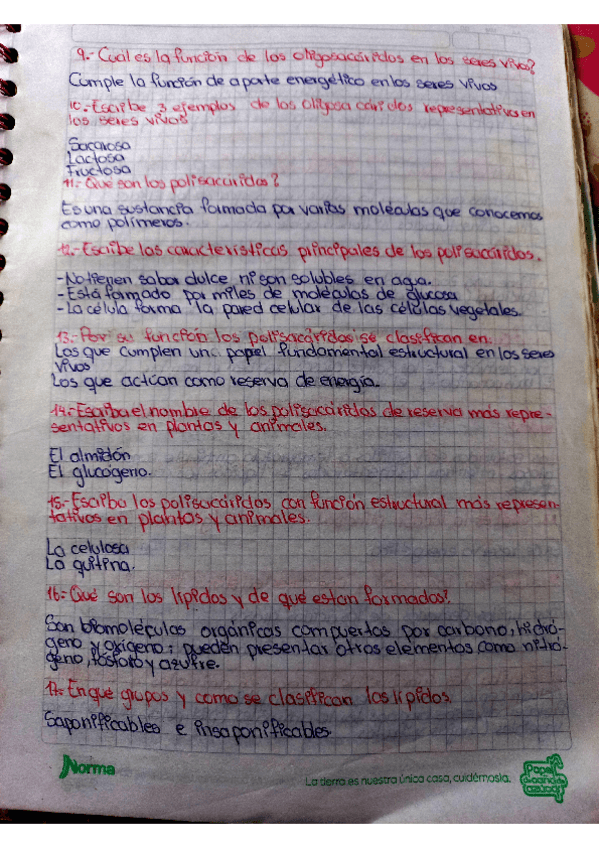 9.- Cual es la función de los oligosacáridos en los seres vivos?
Cumple la función de aporte energético en los seres vivos
10.- Escribe 3 ejemplos de los oligosacáridos representativos en
los seres vivos
Sacarosa
Lactosa
Fructosa
11.- Qué son los polisacáridos?
Es una sustancia formada por varias moléculas que conocemos
como polímeros.
12.- Escribe las características principales de los polisacáridos.
-No tienen sabor dulce ni son solubles en agua.
-Está formado por miles de moléculas de glucosa
-La célula forma la pared celular de las células vegetales.
13.- Por su función los polisacáridos se clasifican en.
Los que cumplen un papel fundamental estructural en los seres
vivos
Los que actúan como reserva de energía.
14.- Escriba el nombre de los polisacáridos de reserva más repre-
sentativos en plantas y animales.
El almidón
El glucógeno.
15.- Escriba los polisacáridos con función estructural más represen-
tativos en plantas y animales.
La celulosa
La quitina.
16.- Qué son los lípidos y de qué estan formados?
Son biomoléculas orgánicas compuertas por carbono, hidró-
geno y oxígeno; pueden presentar otros elementos como nitró-
geno, fósforo y azufre.
17.- En que grupos y como se clasifican los lípidos.
Saponificables e insaponificables.
Norma
La tierra es nuestra única casa, cuidémosla.